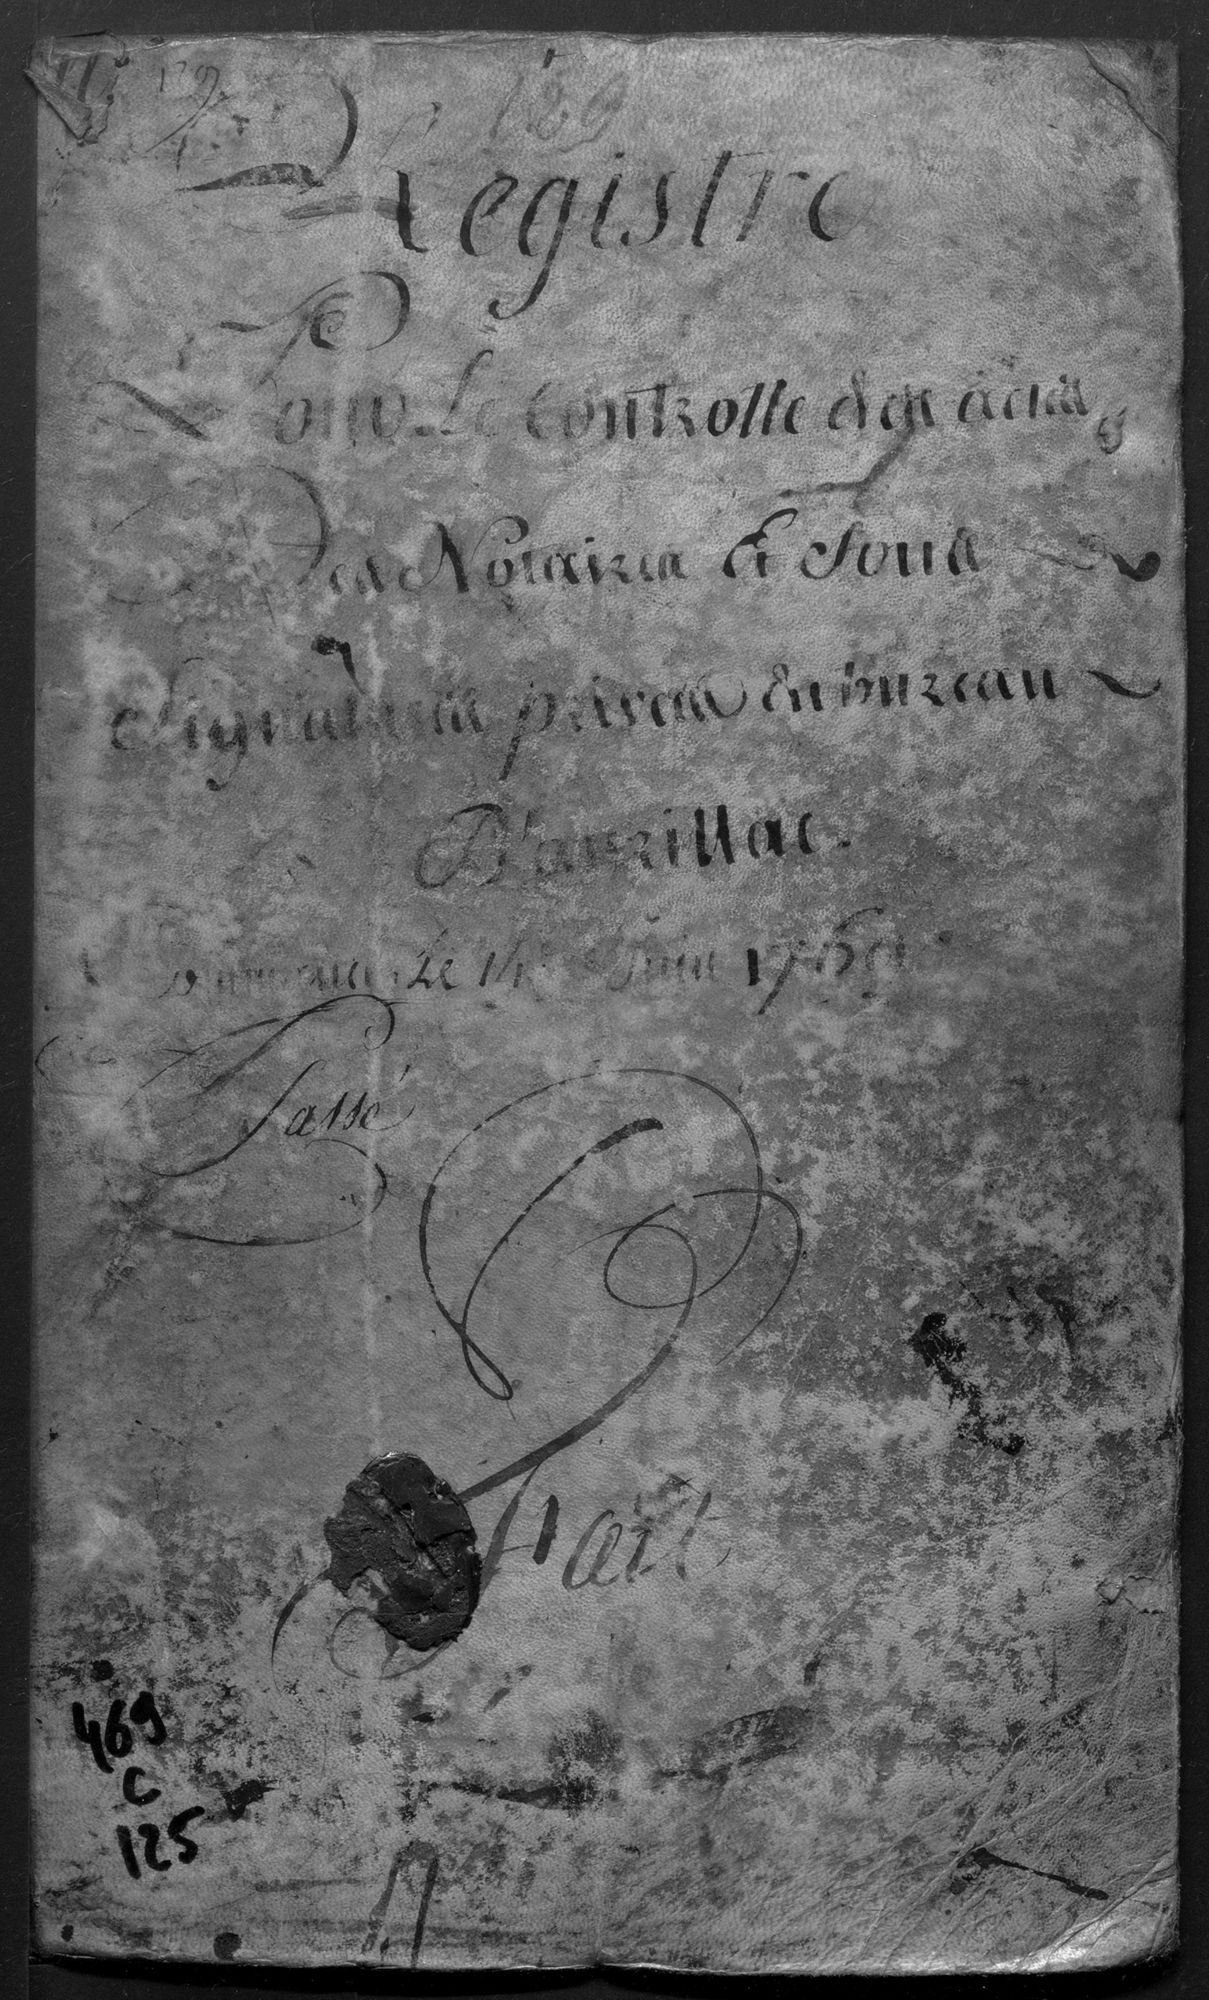 129
129
Registre
Pour Le Controlle des actes
des Notaires Et Sous
Signatures privées du bureau
D'aurillac.
Le 14 Juin 1769
Passé
Fait
469
C
125